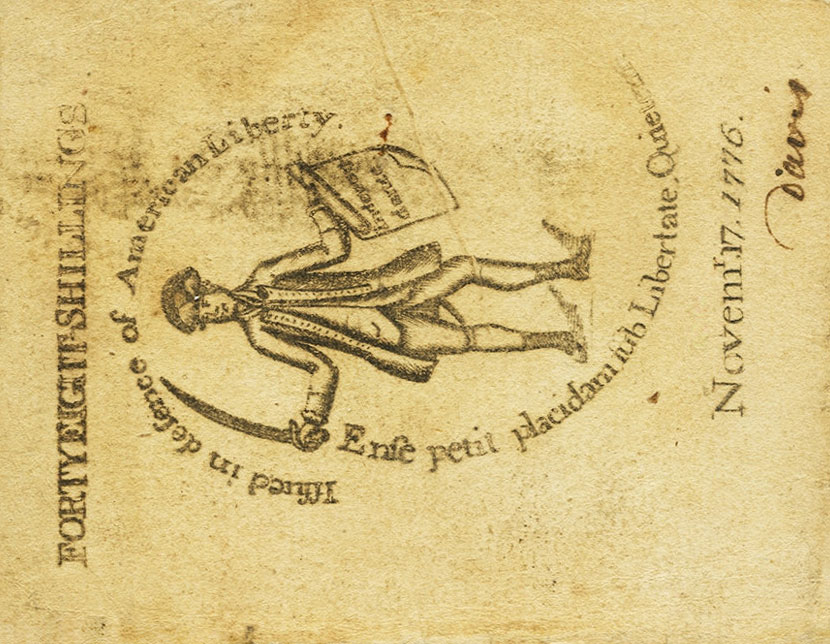 FORTY EIGHT SHILLINGS.
Iſſued in defence of American Liberty.
Indepen
dance
Enſe petit placidam ſub Libertate Quietem
Novemʳ. 17. 1776.
Davis